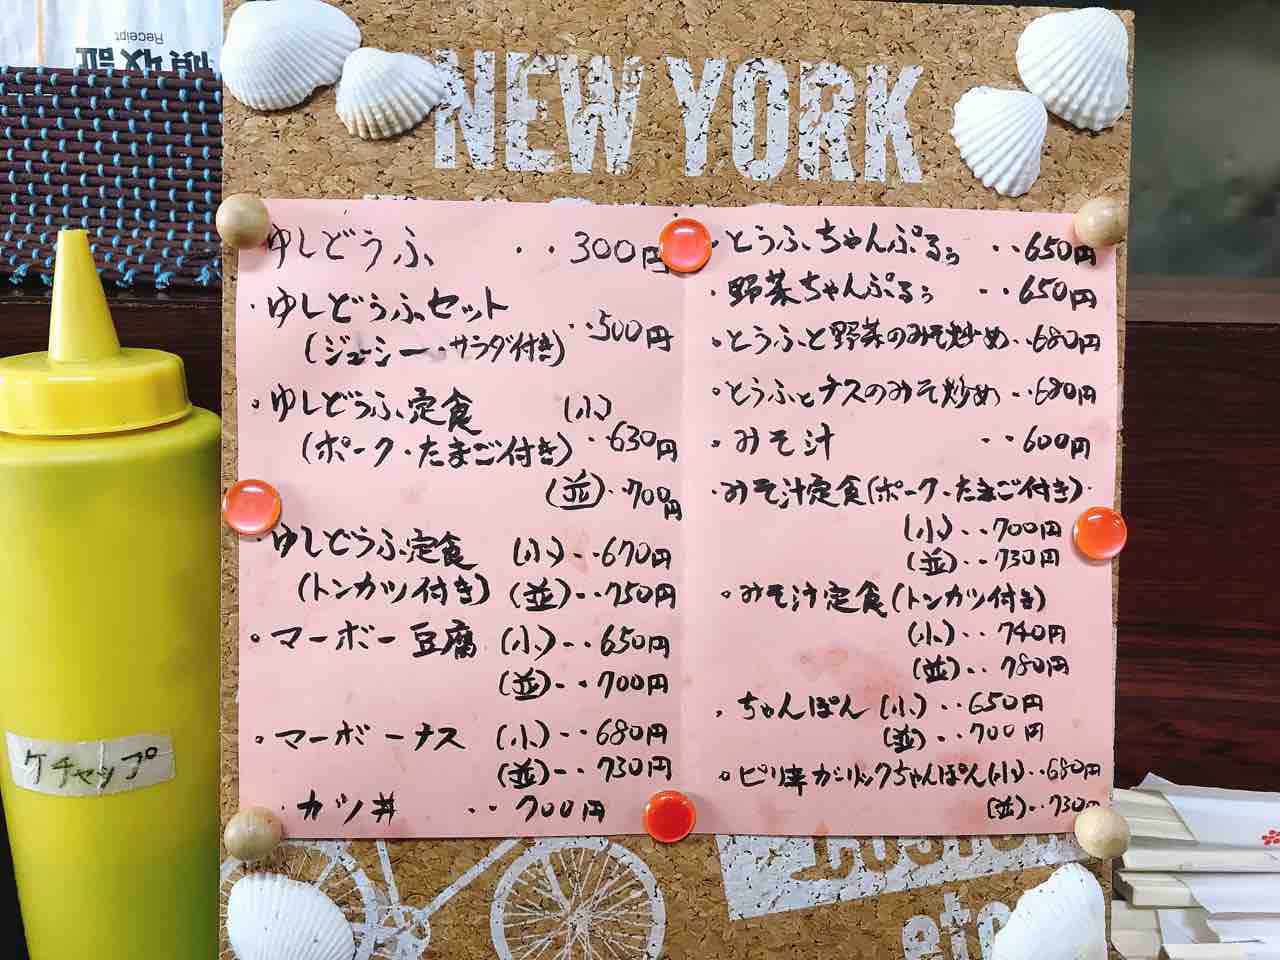 領収証
Receipt
NEW YORK
ゆしどうふ ・・300円
・ゆしどうふセット
(ジューシー・サラダ付き) ・・500円
・ゆしどうふ定食 (小)
(ポーク・たまご付き) ・・630円
(並)・・700円
・ゆしどうふ定食 (小)・・670円
(トンカツ付き) (並)・・750円
・マーボー豆腐 (小)・・650円
(並)・・700円
・マーボーナス (小)・・680円
(並)・・730円
・カツ丼 ・・700円
・とうふちゃんぷるぅ ・・650円
・野菜ちゃんぷるぅ ・・650円
・とうふと野菜のみそ炒め・・680円
・とうふとナスのみそ炒め・・680円
・みそ汁 ・・600円
・みそ汁定食(ポーク・たまご付き)・
(小)・・700円
(並)・・730円
・みそ汁定食(トンカツ付き)
(小)・・740円
(並)・・780円
・ちゃんぽん (小)・・650円
(並)・・700円
・ピリ辛ガーリックちゃんぽん(小)・・680円
(並)・・730円
ケチャップ
etc